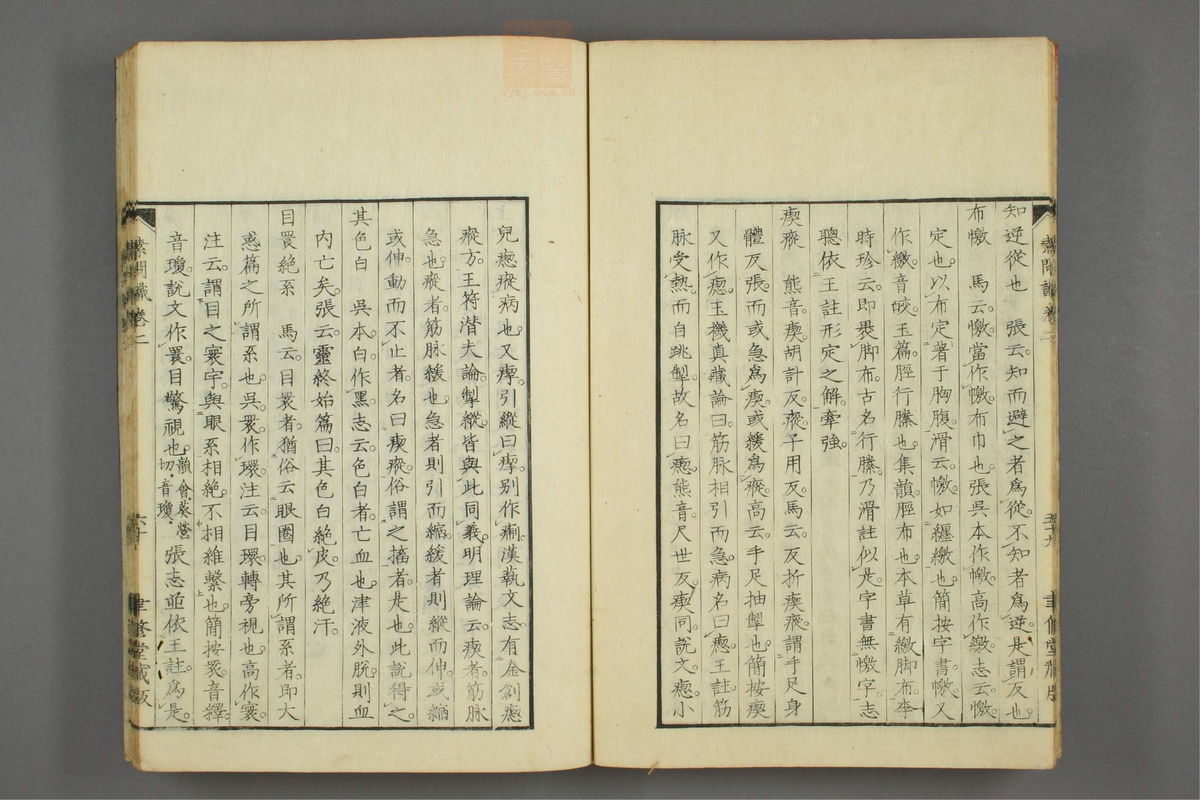 知逆從也 張云知而避之者爲從不知者爲逆是謂反也
布憿 馬云憿當作憿布巾也張吳本作憿高作繳志云憿
定也以布定著于胸腹滑云憿如纏繳也簡按字書憿又
作繳音皎玉篇脛行縢也集韻脛布也本草有繳脚布李
時珍云即褁脚布古名行縢乃滑註似是字書無憿字志
聰依王註形定之解牽強
瘈瘲 熊音瘈胡計反瘲子用反馬云反折瘈瘲謂手足身
體反張而或急爲瘈或緩爲瘲高云手足抽掣也簡按瘈
又作瘛玉機真藏論曰筋脉相引而急病名曰瘛王註筋
脉受熱而自跳掣故名曰瘛熊音尺世反瘈同說文瘛小
素問識卷二
五十九
聿修堂藏版
兒瘛瘲病也又㨖引縱曰㨖別作痸漢藝文志有金創瘛
瘲方王符潛夫論掣縱皆與此同義明理論云瘈者筋脉
急也瘲者筋脉緩也急者則引而縮緩者則縱而伸或縮
或伸動而不止者名曰瘈瘲俗謂之搐者是也此說得之
其色白 吳本白作黑志云色白者亡血也津液外脫則血
內亡矣張云靈終始篇曰其色白絕皮乃絕汗
目睘絕系 馬云目睘者猶俗云眼圈也其所謂系者即大
惑篇之所謂系也吳睘作環注云目環轉旁視也高作寰
注云謂目之寰宇與眼系相絕不相維繫也簡按睘音擇
音瓊說文作瞏目驚視也韻會葵營切音瓊張志並依王註爲是
素問識卷二
六十
聿修堂藏版